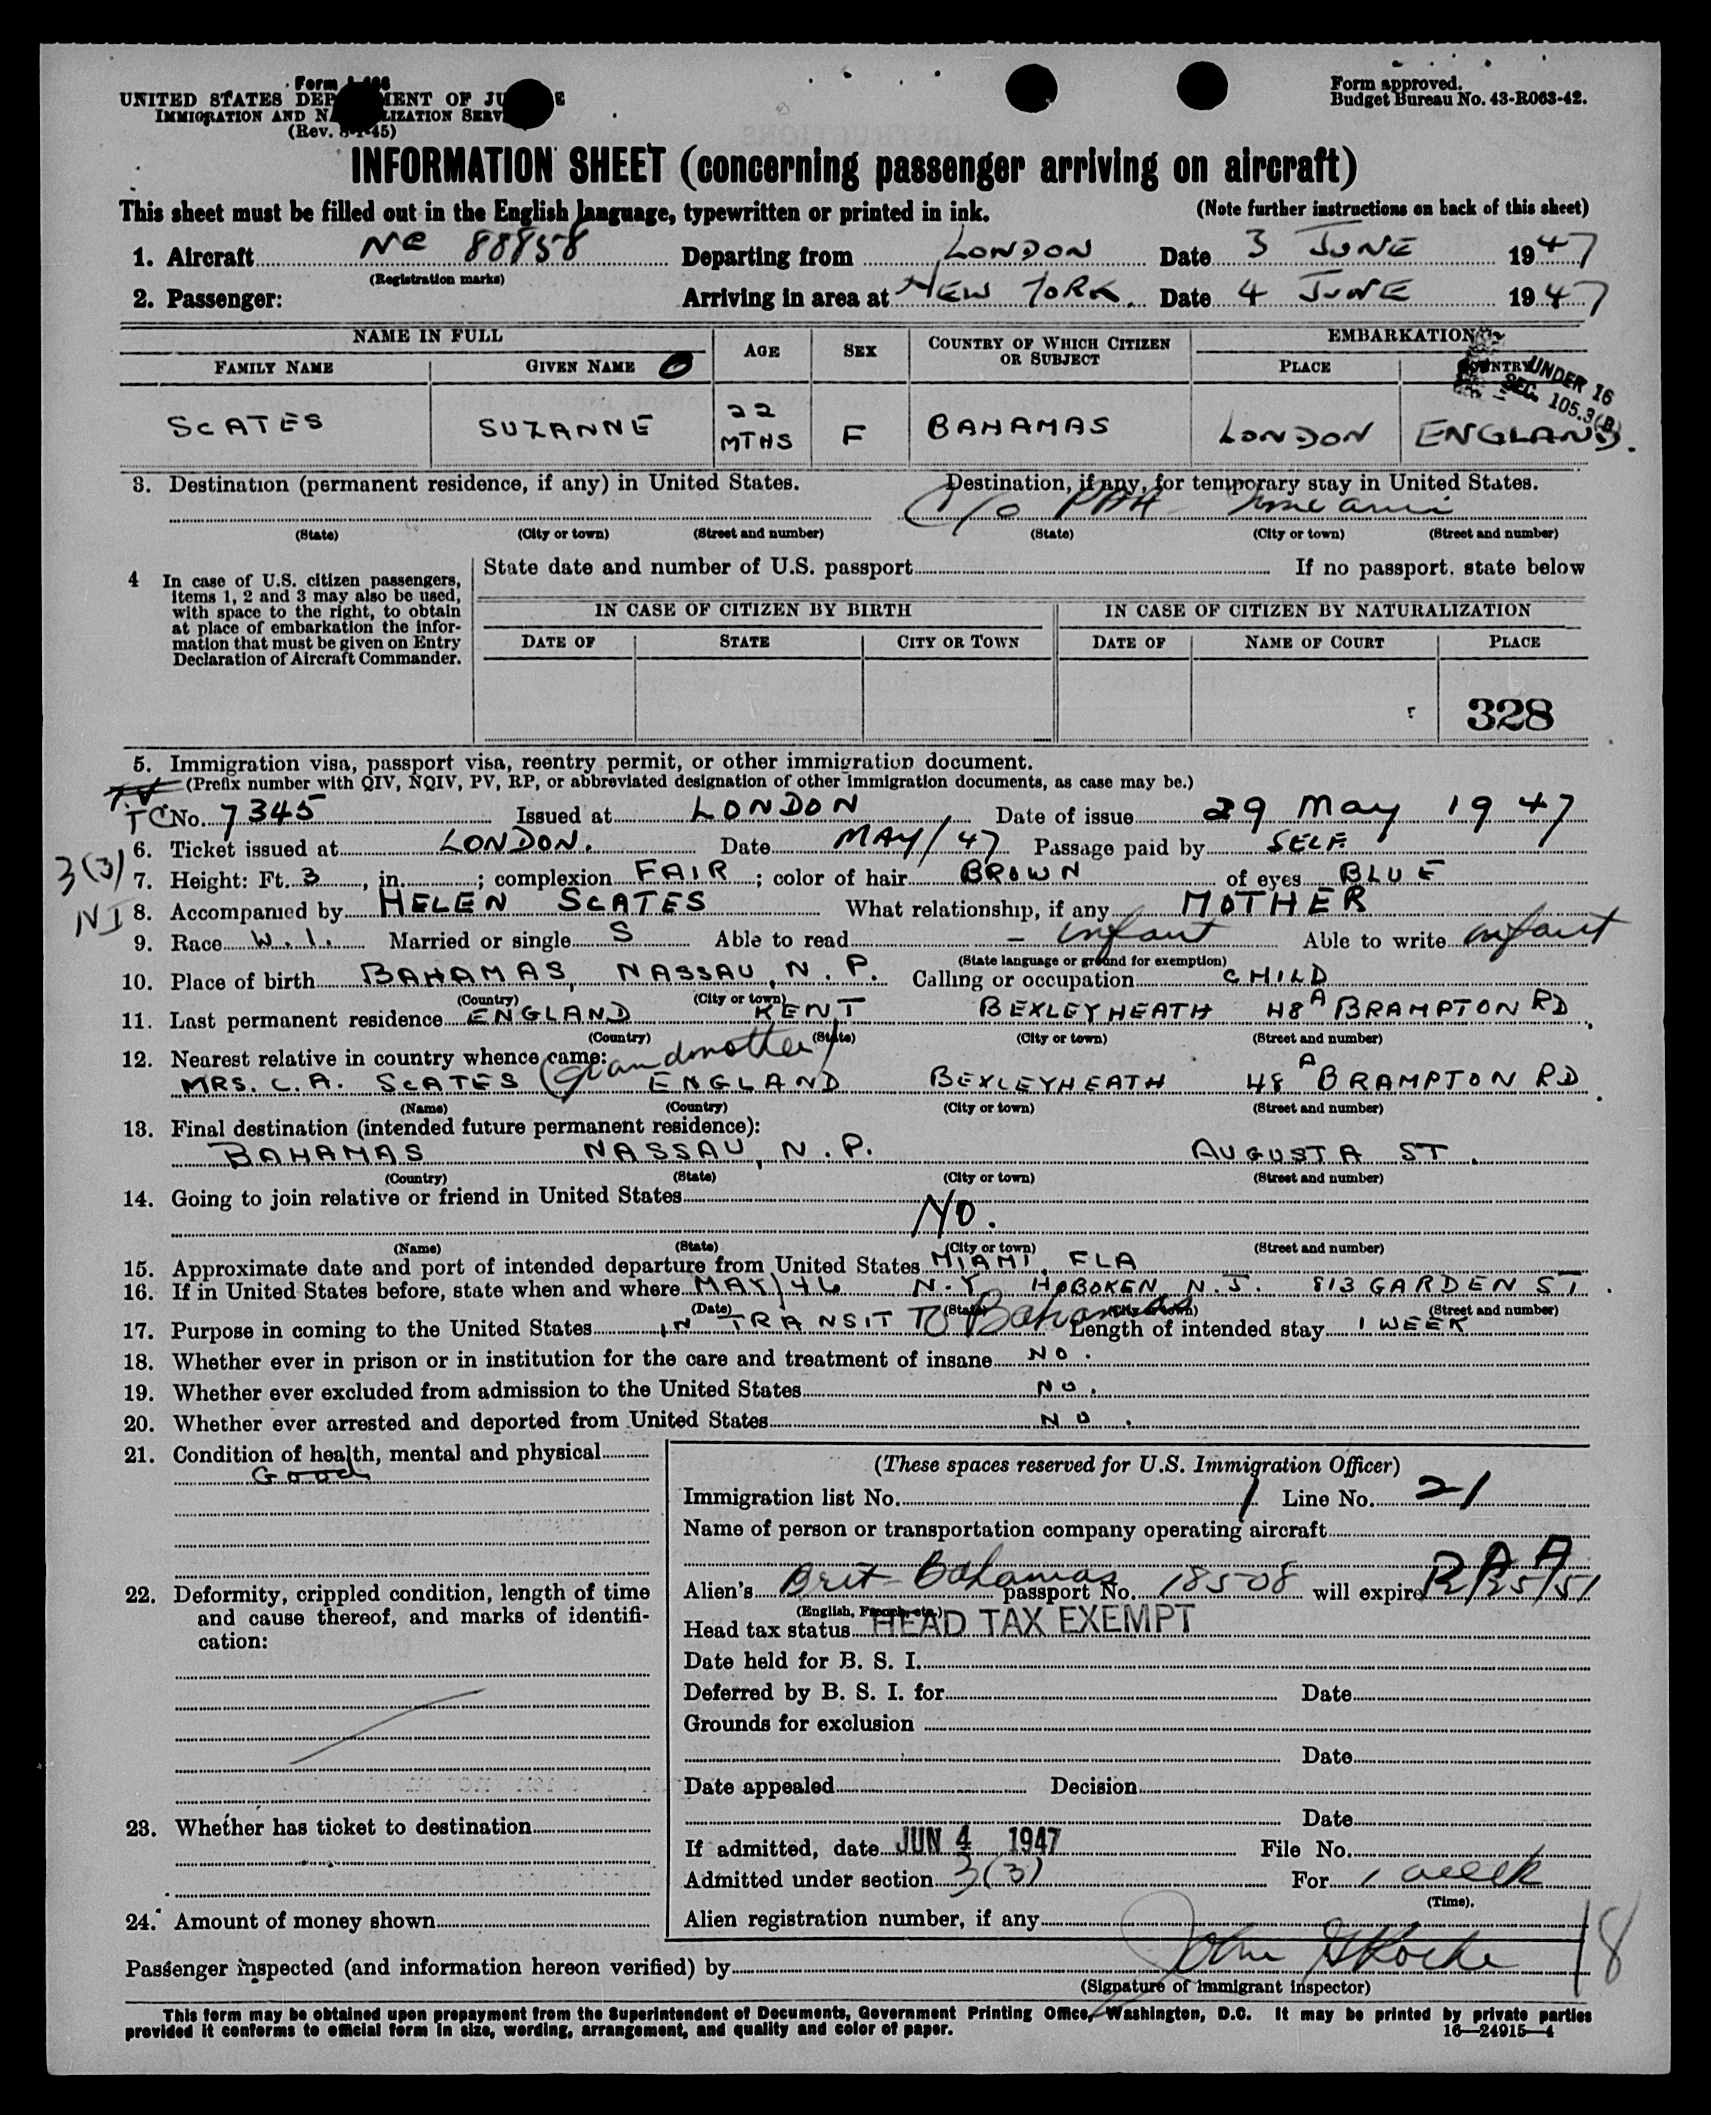 Form
UNITED STATES DEPARTMENT OF JUSTICE
IMMIGRATION AND NATURALIZATION SERVICE
(Rev. 8-1-45)
Form approved.
Budget Bureau No. 43-R063-42.
INFORMATION SHEET (concerning passenger arriving on aircraft)
This sheet must be filled out in the English language, typewritten or printed in ink. (Note further instructions on back of this sheet)
1. Aircraft NC 88858 Departing from LONDON Date 3 JUNE 1947
(Registration marks)
2. Passenger: Arriving in area at NEW YORK Date 4 JUNE 1947
NAME IN FULL AGE SEX COUNTRY OF WHICH CITIZEN OR SUBJECT EMBARKATION
FAMILY NAME GIVEN NAME PLACE COUNTRY
UNDER 16
SEC. 105.3(B)
SCATES SUZANNE 22 MTHS F BAHAMAS LONDON ENGLAND.
3. Destination (permanent residence, if any) in United States. Destination, if any, for temporary stay in United States.
C/o PAA
(State) (City or town) (Street and number) (State) (City or town) (Street and number)
4 In case of U.S. citizen passengers, items 1, 2 and 3 may also be used, with space to the right, to obtain at place of embarkation the information that must be given on Entry Declaration of Aircraft Commander.
State date and number of U.S. passport If no passport, state below
IN CASE OF CITIZEN BY BIRTH IN CASE OF CITIZEN BY NATURALIZATION
DATE OF STATE CITY OR TOWN DATE OF NAME OF COURT PLACE
328
5. Immigration visa, passport visa, reentry permit, or other immigration document.
(Prefix number with QIV, NQIV, PV, RP, or abbreviated designation of other immigration documents, as case may be.)
TC No. 7345 Issued at LONDON Date of issue 29 May 1947
6. Ticket issued at LONDON. Date MAY/47 Passage paid by SELF
3(3) 7. Height: Ft. 3, in. ; complexion FAIR; color of hair BROWN of eyes BLUE
NI 8. Accompanied by HELEN SCATES What relationship, if any MOTHER
9. Race W.I. Married or single S Able to read - infant Able to write infant
(State language or ground for exemption)
10. Place of birth BAHAMAS, NASSAU, N.P. Calling or occupation CHILD
(Country) (City or town)
11. Last permanent residence ENGLAND KENT BEXLEYHEATH 48A BRAMPTON RD
(Country) (State) (City or town) (Street and number)
12. Nearest relative in country whence came:
MRS. C.A. SCATES (Grandmother) ENGLAND BEXLEYHEATH 48A BRAMPTON RD
(Name) (Country) (City or town) (Street and number)
13. Final destination (intended future permanent residence):
BAHAMAS NASSAU, N.P. AUGUSTA ST.
(Country) (State) (City or town) (Street and number)
14. Going to join relative or friend in United States
NO.
(Name) (State) (City or town) (Street and number)
15. Approximate date and port of intended departure from United States MIAMI, FLA
16. If in United States before, state when and where MAY/46 N.Y HOBOKEN N.J. 813 GARDEN ST.
(Date) (State) (City or town) (Street and number)
17. Purpose in coming to the United States IN TRANSIT TO Bahamas Length of intended stay 1 WEEK
18. Whether ever in prison or in institution for the care and treatment of insane NO.
19. Whether ever excluded from admission to the United States NO.
20. Whether ever arrested and deported from United States NO.
21. Condition of health, mental and physical
Good
22. Deformity, crippled condition, length of time
and cause thereof, and marks of identifi-
cation:
23. Whether has ticket to destination
24. Amount of money shown
(These spaces reserved for U.S. Immigration Officer)
Immigration list No. 1 Line No. 21
Name of person or transportation company operating aircraft
PAA
Alien's Brit-Bahamas passport No. 18508 will expire 2/25/51
(English, French, etc.)
Head tax status HEAD TAX EXEMPT
Date held for B. S. I.
Deferred by B. S. I. for Date
Grounds for exclusion
Date
Date appealed Decision
Date
If admitted, date JUN 4 1947 File No.
Admitted under section 3(3) For 1 week
(Time).
Alien registration number, if any
18
Passenger inspected (and information hereon verified) by John
(Signature of immigrant inspector)
This form may be obtained upon prepayment from the Superintendent of Documents, Government Printing Office, Washington, D.C. It may be printed by private parties
provided it conforms to official form in size, wording, arrangement, and quality and color of paper. 16—24915-4